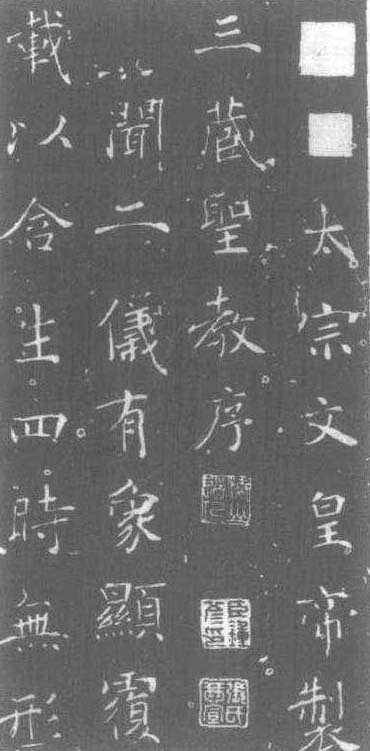 太宗文皇帝製
三藏聖教序
聞二儀有象顯覆
載以含生四時無形